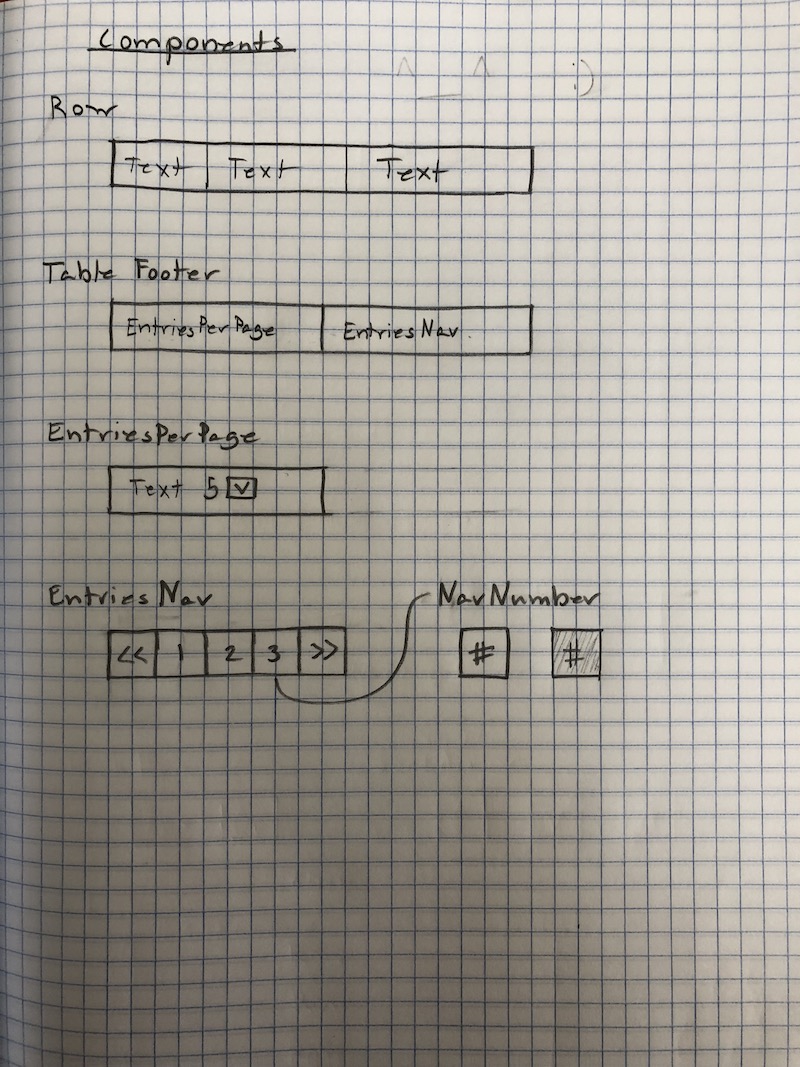 Components
:)
Row
Text Text Text
Table Footer
EntriesPerPage EntriesNav.
EntriesPerPage
Text 5 V
EntriesNav NavNumber
<< 1 2 3 >> # #